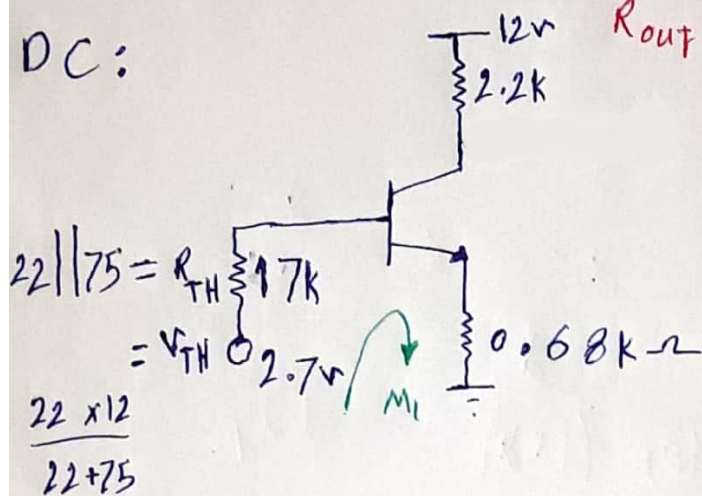 DC:
12v
ROUT
2.2k
22||75 = RTH 17k
= VTH 2.7v
M1
0.68kΩ
22 x12
22+75